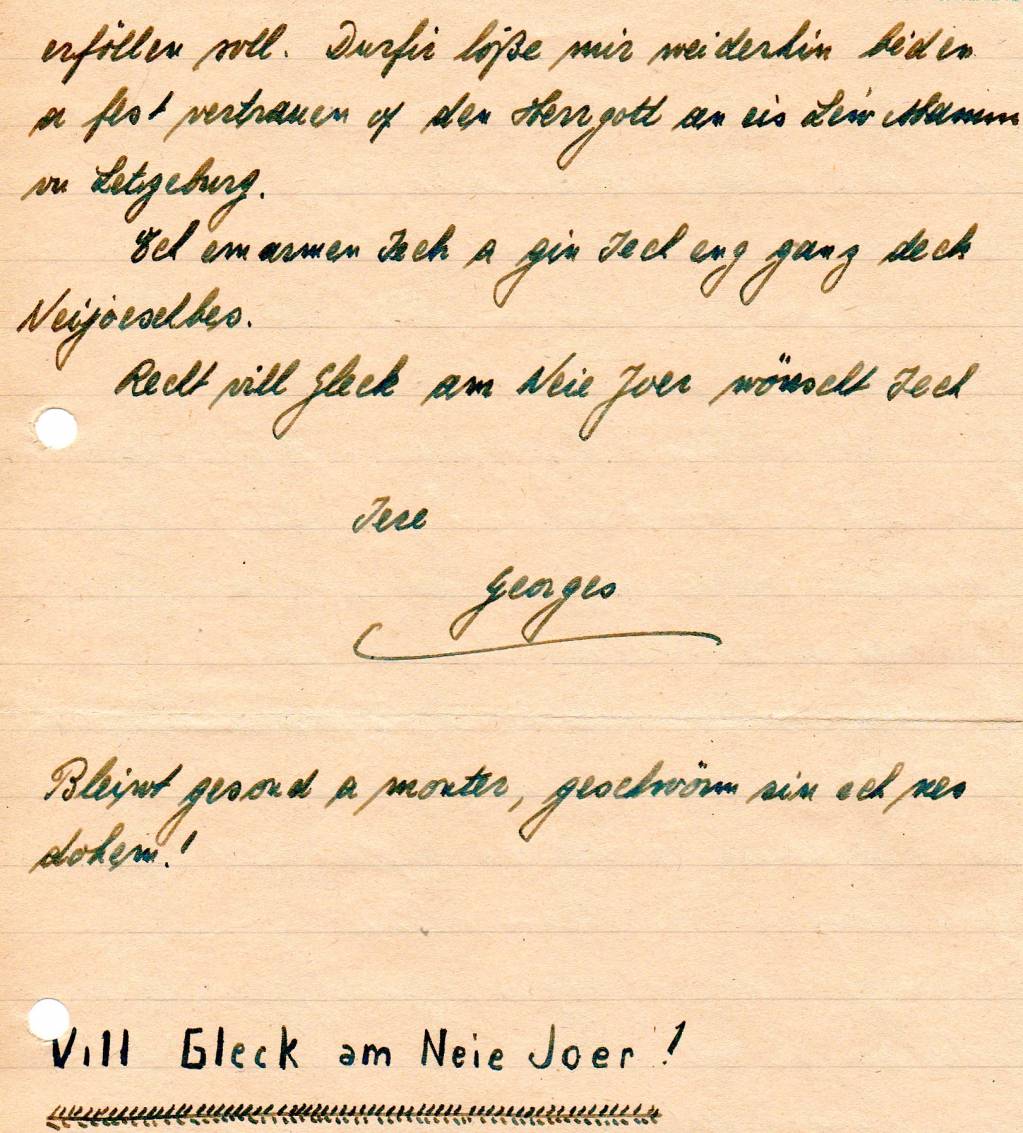 erföllen soll. Durfir löße mir weiderhin bieden
a fest vertrauen of den Herrgott an eis Leiw Mamm
vu Letzeburg.
Ech emarmen Iech a gin Iech eng ganz deck
Neijoeschbes.
Recht vill Gleck am Neie Joer wönscht Iech
Iere
Georges
Bleiwt gesond a monter, geschwönn sin ech nes
dohem!
Vill Gleck am Neie Joer!